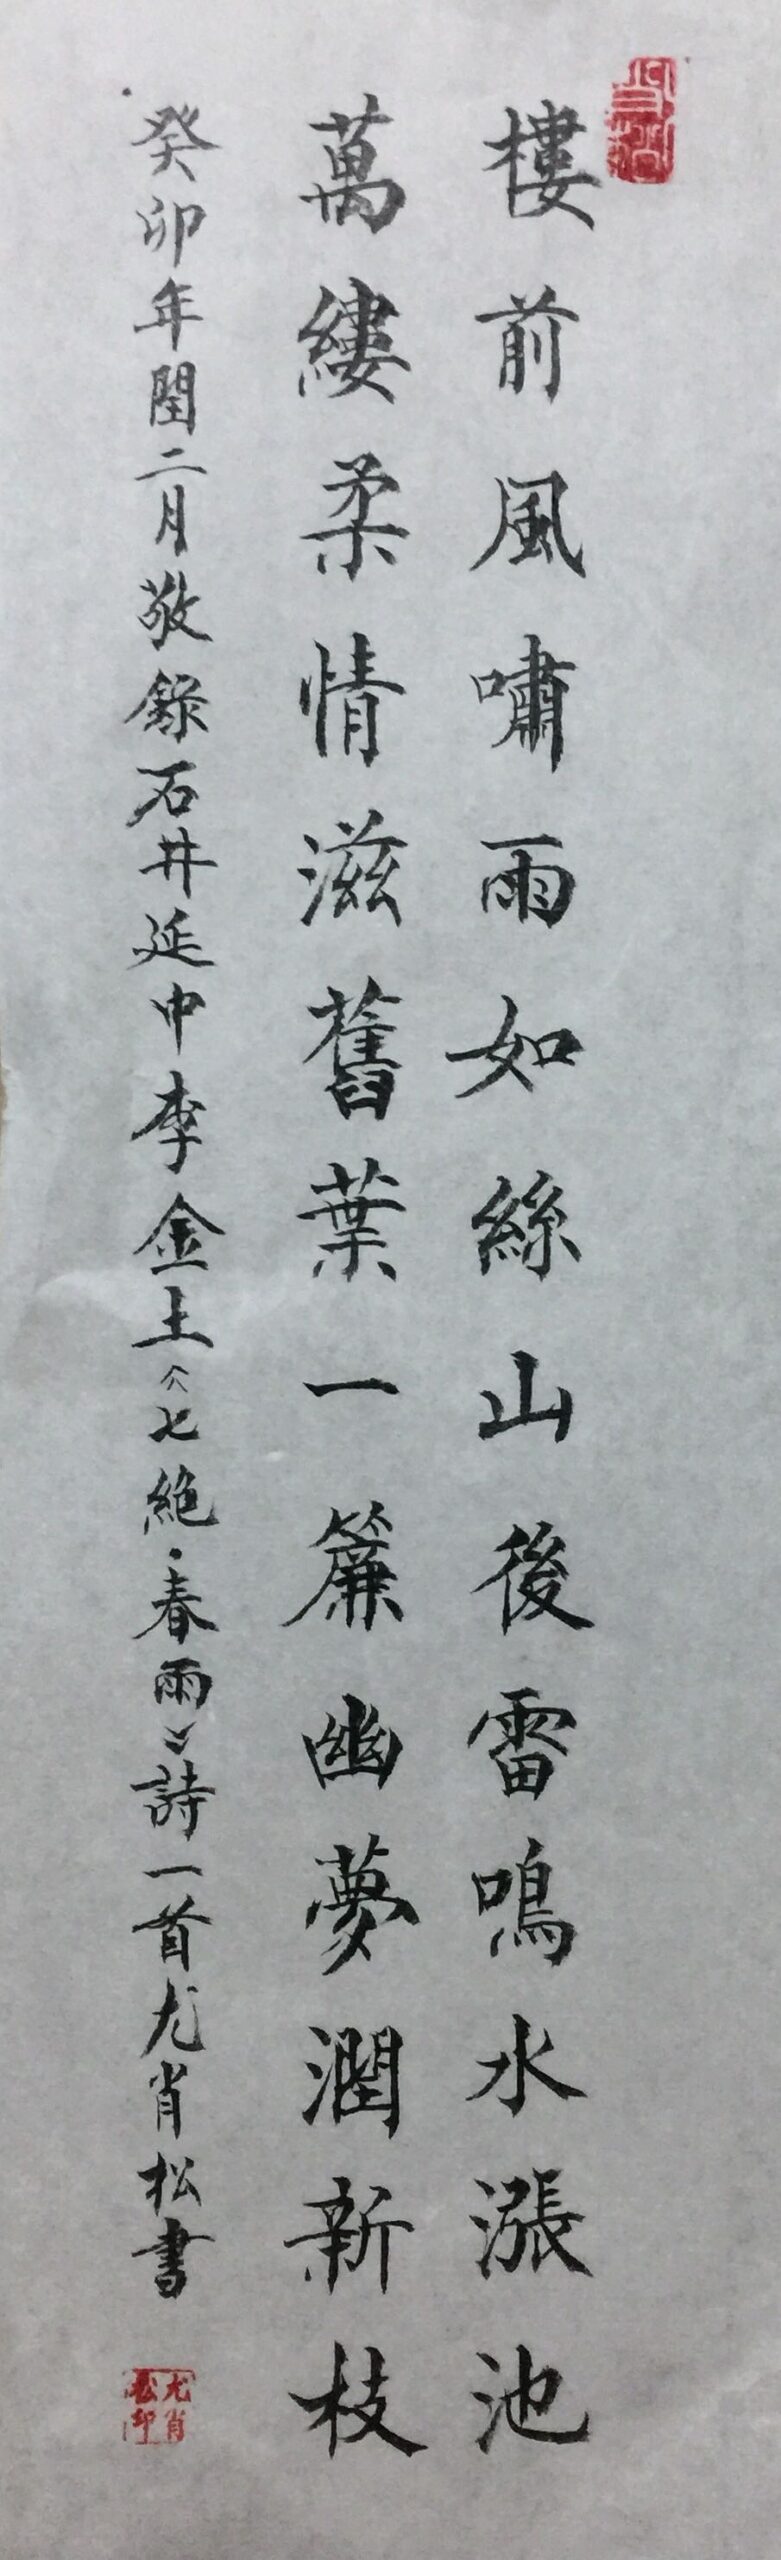 樓前風嘯雨如絲山後雷鳴水漲池
萬縷柔情滋舊葉一簾幽夢潤新枝
癸卯年閏二月敬錄石井延中李金土《七絕·春雨》詩一首尤肖松書
尤肖松印